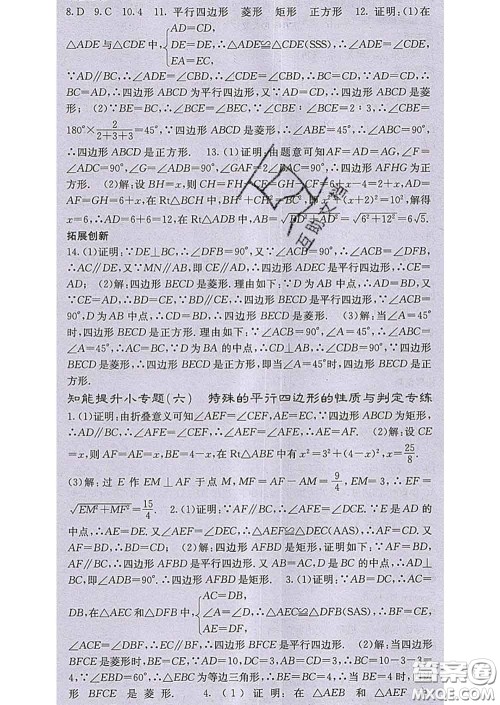 8.D 9.C 10.4 11. 平行四边形 菱形 矩形 正方形 12. 证明:(1)在
AD=CD,
△ADE与△CDE中,DE=DE,∴△ADE≌△CDE(SSS),∴∠ADE=∠CDE,
EA=EC,
∵AD∥BC,∴∠ADE=∠CBD,∴∠CDE=∠CBD,∴BC=CD,∵AD=CD,∴
BC=AD,∴四边形ABCD为平行四边形,又∵AD=CD,∴四边形ABCD是菱
形; (2)∵BE=BC,∴∠BCE=∠BEC,∵∠CBE∶∠BCE=2∶3,∴∠CBE=
180°×2/(2+3+3)=45°,∵四边形ABCD是菱形,∴∠ABE=45°,∴∠ABC=90°,∴四
边形ABCD是正方形. 13.(1)证明,由题意可知AF=AD=AG,∠F=
∠ADC=90°,∠G=∠ADB=90°,∠GAF=2∠BAC=90°,∴四边形AFHG为正方
形. (2)解:设BH=x,则CH=
x=6,∴AD=6+6=12,在Rt△ADB中,AB=√(BD²+AD²)=√(6²+12²)=6√5.
拓展创新
14.(1)证明:∵DE⊥BC,∴∠DFB=90°,又∵∠ACB=90°,∴∠ACB=∠DFB,
∴AC∥DE,又∵MN∥AB,即CE∥AD,∴四边形ADEC是平行四边形,∴CE=
AD; (2)解:四边形BECD是菱形.理由如下:∵D为AB中点,∴AD=BD,又
∵CE=AD,∴BD=CE,∵BD∥CE,∴四边形BECD是平行四边形,∵∠ACB=
90°,D为AB中点,∴CD=BD,∴四边形BECD是菱形. (3)解:当∠A=45°
时,四边形BECD是正方形.理由如下:∵∠ACB=90°,∠A=45°,∴∠ABC=
∠A=45°,∴AC=BC,∵D为BA的中点,∴CD⊥AB,∴∠CDB=90°,∵四边形
BECD是菱形,∴四边形BECD是正方形,即当∠A=45°时,四边形BECD是正方
形.
知能提升小专题(六) 特殊的平行四边形的性质与判定专练
1.(1)证明:由折叠意义可知∠AEF=∠CEF,AE=EC,∵四边形ABCD为矩形,
∴AD∥BC,∴∠AFE=∠CEF,∴∠AEF=∠AFE,∴AE=AF. (2)解:设CE
=x,则AF=AE=x,BE=4-x,在Rt△ABE中有x²=3²+(4-x)²,x=25/8.
(3)解:过E作EM⊥AF于点M,MF=AF-AM=9/4,EM=3,∴EF=
√(EM²+MF²)=15/4. 2.(1)证明:∵AF∥BC,∴∠AFE=∠DCE.∵E是AD的
中点,∴AE=DE.又∠AEF=∠DEC,∴△AEF≌△DEC(AAS),∴AF=CD.又
AF=BD,∴BD=CD; (2)解:四边形AFBD是矩形,证明如下:∵AF=BD,
AF∥BD,∴四边形AFBD是平行四边形.又∵AB=AC,D是BC的中点,∴AD⊥
BC,即∠ADB=90°.∴四边形AFBD是矩形. 3.(1)证明:∵AB=DC,∴AC=
AC=DB,
DB,在△AEC和△DFB中,∠A=∠D,∴△AEC≌△DFB(SAS),∴BF=CE,
AE=DF,
∠ACE=∠DBF,∴EC∥BF,∴四边形BFCE是平行四边形. (2)解:当四边形
BFCE是菱形时,BE=CE,∵AD=10,DC=3,AB=CD=3,∴BC=10-3-3=
4.∵∠EBD=60°,∴△EBC为等边三角形,∴BE=BC=4,∴当BE=4时,四边
形BFCE是菱形. 4.(1)证明:在△AEB和△AFD
互助文档
答案圈
MXQE.COM